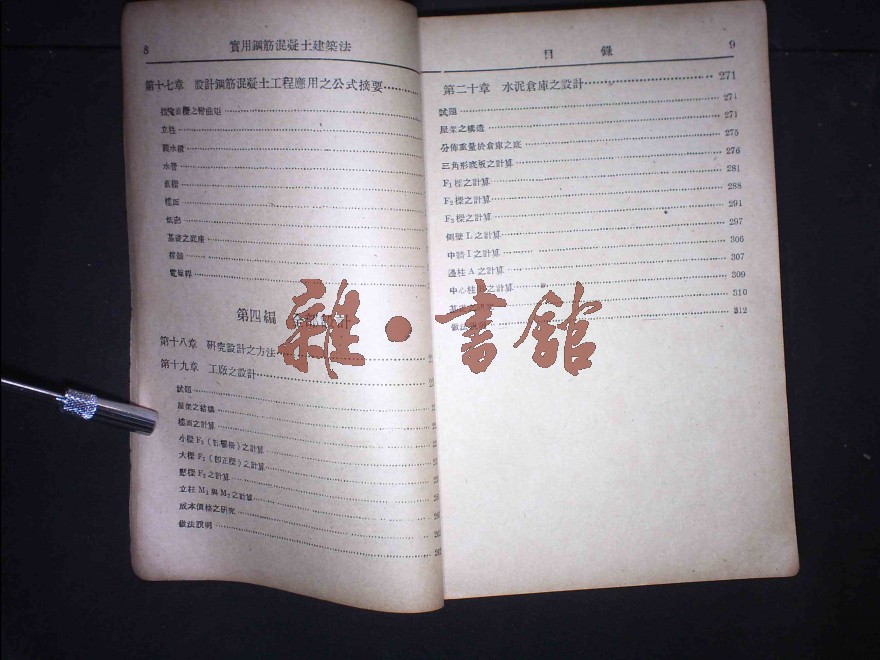 8 實用鋼筋混凝土建築法
第十七章 設計鋼筋混凝土工程應用之公式摘要
之彎曲矩
立柱
水管
樓面
基礎之底座
第四編
第十八章 研究設計之方法
第十九章 工廠之設計
試題
屋架之結構
樓面之計算
小樑 F₃ ( ) 之計算
大樑 F₁ (即正樑) 之計算
F₂ 之計算
立柱 M₁ 與 M₂ 之計算
成本價格之研究
做法說明
目 錄 9
第二十章 水泥倉庫之設計 271
試題 271
屋架之構造 271
分佈重量於倉庫之底 275
三角形底板之計算 276
F₁ 樑之計算 281
F₂ 樑之計算 288
F₃ 樑之計算 291
側壁 L 之計算 297
中牆 I 之計算 306
邊柱 A 之計算 307
中心柱 之計算 309
310
做法 312
雜·書館